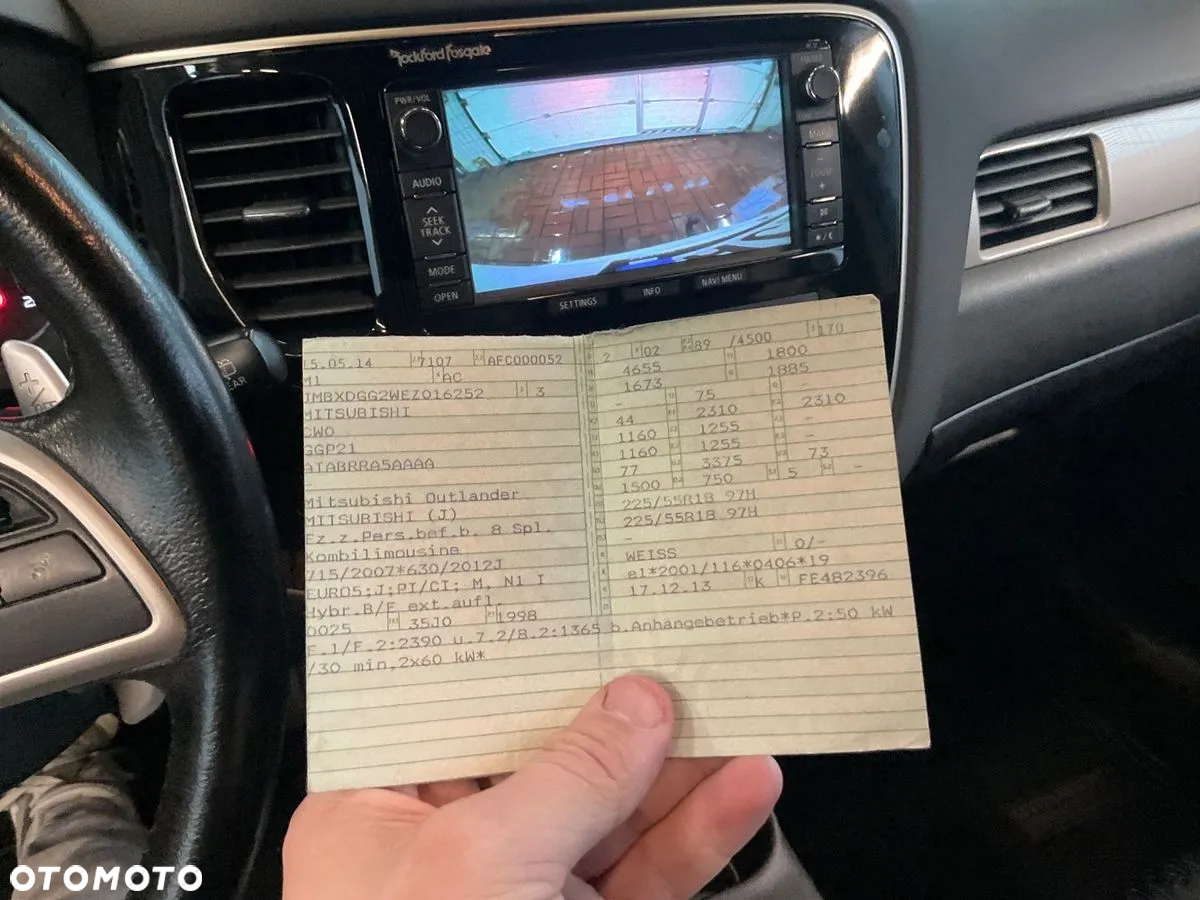 Rockford Fosgate
PWR/VOL
AUDIO
SEEK
TRACK
MODE
OPEN
SETTINGS
INFO
NAVI MENU
FOLDER
MAP
ZOOM
+
2
REAR
15.05.14 7107 AEC000052
M1 AC
JMBXDGG2WEZ016252 3
MITSUBISHI
CW0
GGP21
ATABRRA5AAAA
-
Mitsubishi Outlander
MITSUBISHI (J)
Fz.z.Pers.bef.b. 8 Spl.
Kombilimousine
715/2007*630/2012J
EURO5;J;PI/CI; M, N1 I
Hybr.B/E ext.aufl
0025 35J0 1998
F.1/F.2:2390 u.7.2/8.2:1365 b.Anhängebetrieb*P.2:50 kW
/30 min,2x60 kW*
2 02 89 /4500 170
4655 1800
1673 1885
- 75 -
44 2310 2310
1160 1255 -
1160 1255 -
77 3375 73
1500 750 5 -
225/55R18 97H
225/55R18 97H
-
WEISS 0/-
e1*2001/116*0406*19
17.12.13 K FE482396
OTOMOTO